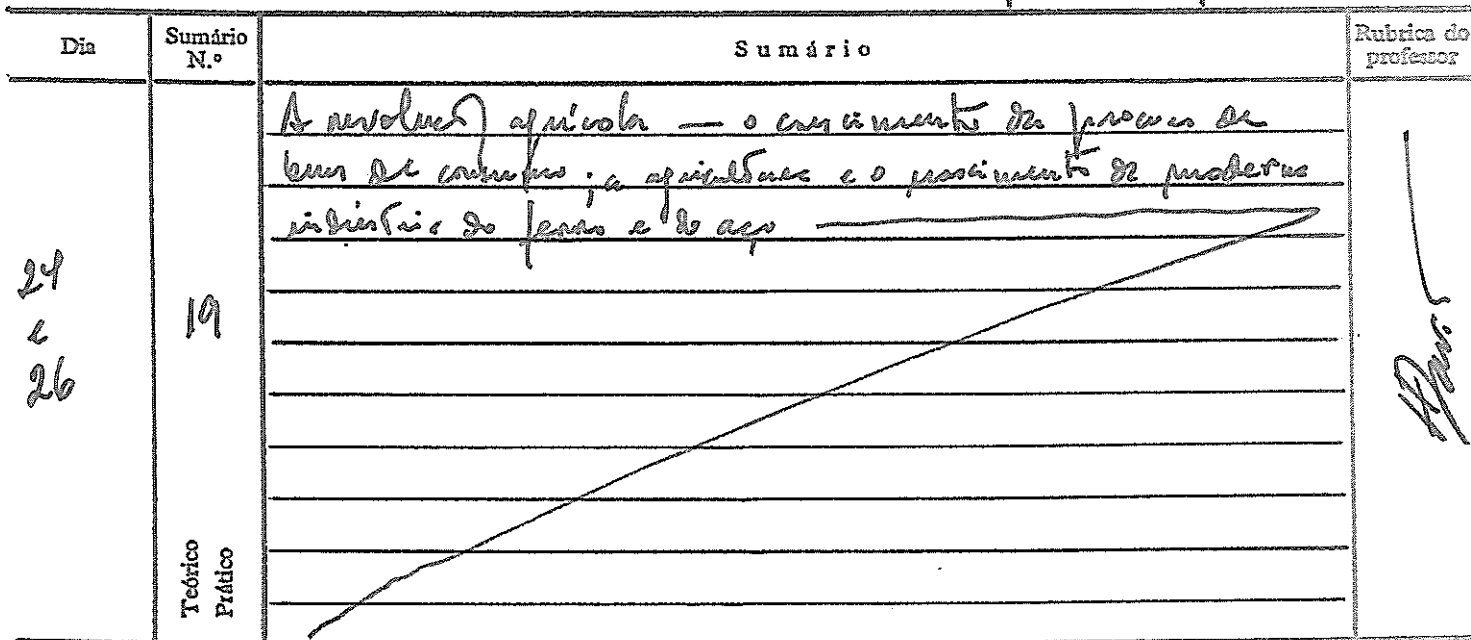 Dia
Sumário N.º
Sumário
Rubrica do professor
24 e 26
19
A revolução agrícola — o crescimento da procura de
bens de consumo; a agricultura e o nascimento da moderna
indústria do ferro e do aço
Teórico
Prático